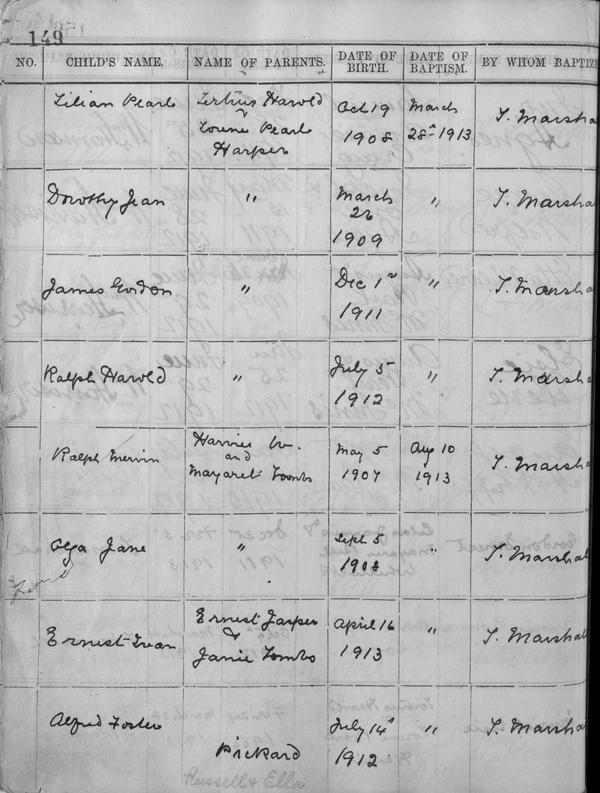 149
NO. CHILD'S NAME. NAME OF PARENTS. DATE OF BIRTH. DATE OF BAPTISM. BY WHOM BAPTIZ
Lilian Pearl Harold & Pearl Harper Oct 19 1908 March 28th 1913 T. Marsha
Dorothy Jean " March 26 1909 " T. Marsha
James Gordon " Dec 1st 1911 " T. Marsha
Ralph Harold " July 5 1912 " T. Marsha
Ralph Mervin Harvie W. and Margaret Tombs May 5 1907 Aug 10 1913 T. Marshal
Olga Jane " Sept 5 1908 " T. Marshal
Ernest Ivan Ernest Jasper & Janie Tombs April 16 1913 " T. Marshal
Alfred Foster Pickard July 14th 1912 " T. Marshal
Russell & Ella